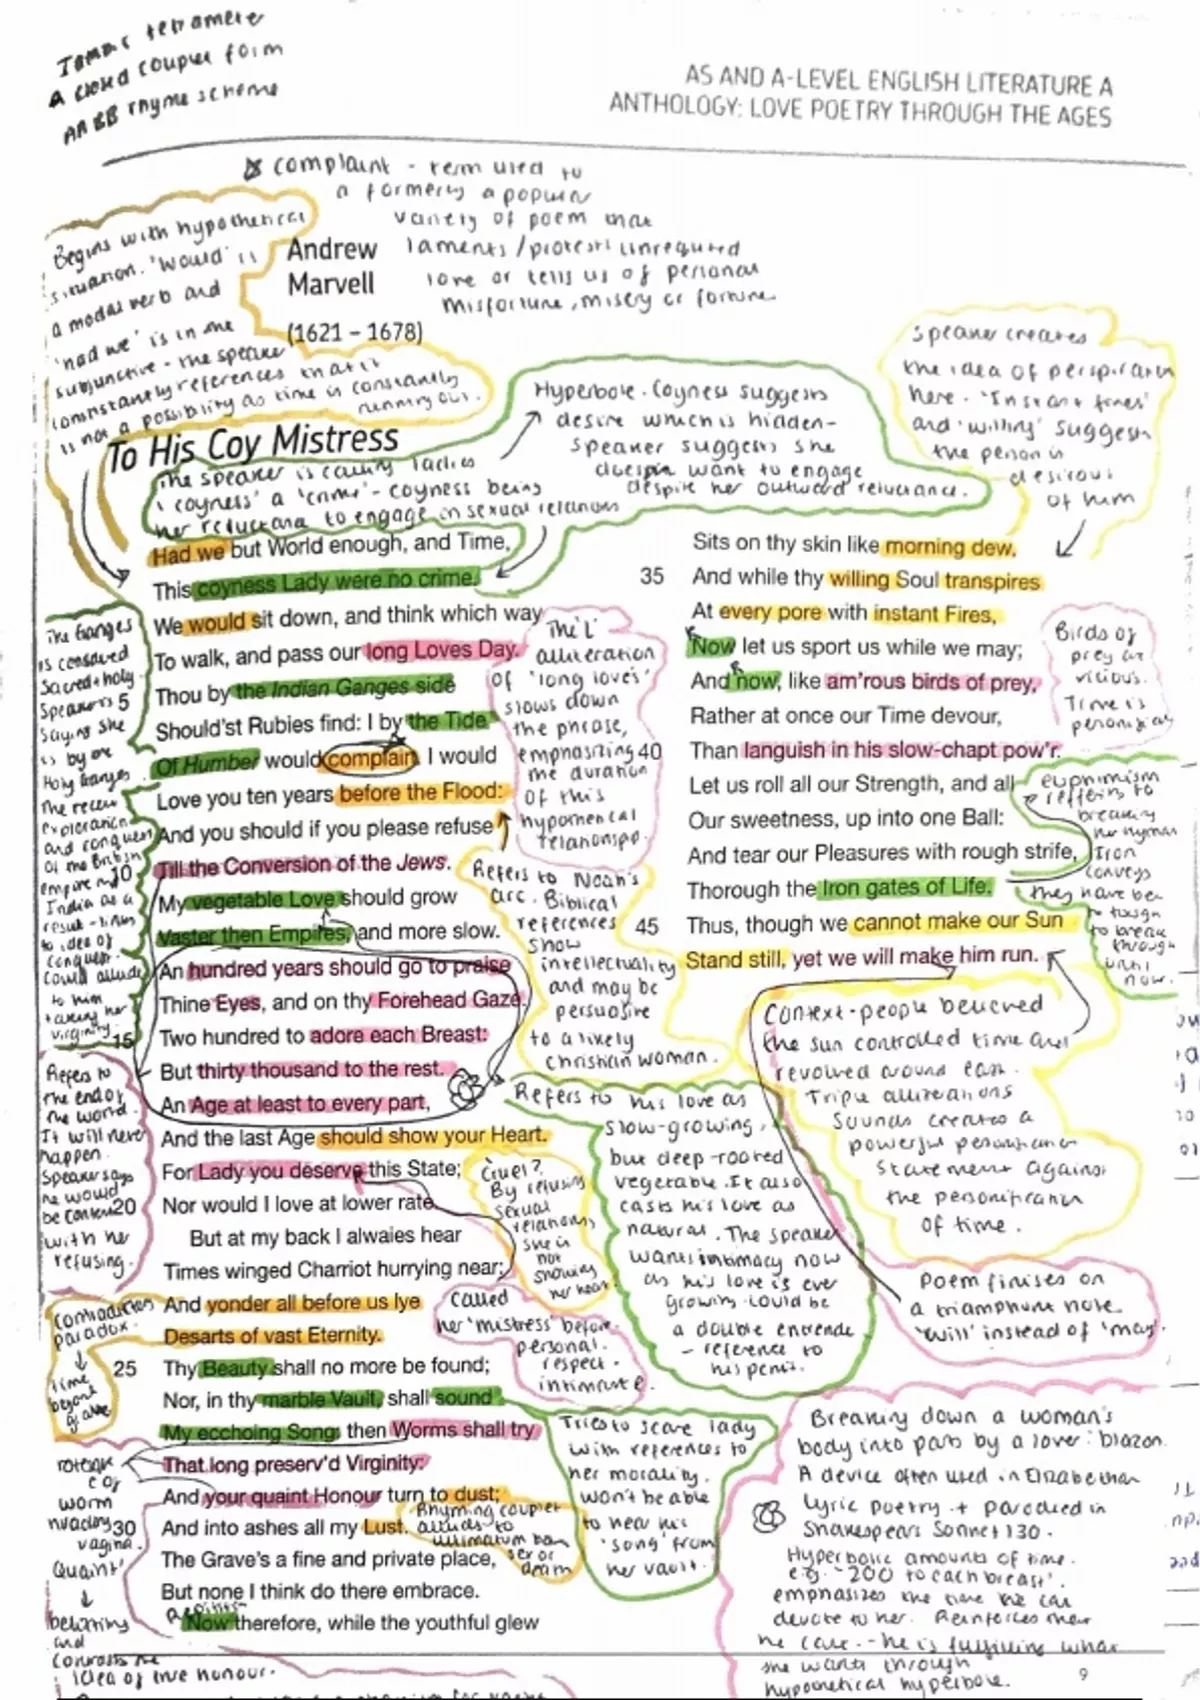 Iambic tetrameter
A closed couplet form
AABB rhyme scheme
AS AND A-LEVEL ENGLISH LITERATURE A
ANTHOLOGY: LOVE POETRY THROUGH THE AGES
complaint - term used to
a formerly a popular
variety of poem that
laments/protests unrequited
love or tells us of personal
misfortune, misery or fortune
Begins with hypothetical
situation. 'Would' is
a modal verb and
'had we' is in the
subjunctive - the speaker
constantly references that it
is not a possibility as time is constantly
running out.
Andrew
Marvell
(1621 – 1678)
To His Coy Mistress
Hyperbole. Coyness suggests
desire which is hidden-
speaker suggests she
does want to engage
despite her outward reluctance.
The speaker is calling ladies
'coyness' a 'crime' - coyness being
her reluctance to engage in sexual relations
Speaker creates
the idea of perspiration
here. 'Instant fires'
and 'willing' suggests
the person is
desirous
of him
Had we but World enough, and Time,
This coyness Lady were no crime.
We would sit down, and think which way
To walk, and pass our long Loves Day.
Thou by the Indian Ganges side
5
Should'st Rubies find: I by the Tide
Of Humber would complain. I would
Love you ten years before the Flood:
And you should if you please refuse
Till the Conversion of the Jews.
10
My vegetable Love should grow
Vaster then Empires, and more slow.
An hundred years should go to praise
Thine Eyes, and on thy Forehead Gaze.
Two hundred to adore each Breast:
15
But thirty thousand to the rest.
An Age at least to every part,
And the last Age should show your Heart.
For Lady you deserve this State;
Nor would I love at lower rate.
20
But at my back I alwaies hear
Times winged Charriot hurrying near;
And yonder all before us lye
Desarts of vast Eternity.
Thy Beauty shall no more be found;
25
Nor, in thy marble Vault, shall sound
My ecchoing Song: then Worms shall try
That long preserv'd Virginity:
And your quaint Honour turn to dust;
And into ashes all my Lust.
30
The Grave's a fine and private place,
But none I think do there embrace.
Now therefore, while the youthful glew
Sits on thy skin like morning dew,
And while thy willing Soul transpires
35
At every pore with instant Fires,
Now let us sport us while we may;
And now, like am'rous birds of prey,
Rather at once our Time devour,
Than languish in his slow-chapt pow'r.
40
Let us roll all our Strength, and all
Our sweetness, up into one Ball:
And tear our Pleasures with rough strife,
Thorough the Iron gates of Life.
Thus, though we cannot make our Sun
45
Stand still, yet we will make him run.
The Ganges
is considered
sacred + holy
Speaker is
saying she
is by the
Holy Ganges
The recent
exploration
and conquest
of the British
empire into
India as a
result - links
to idea of
conquest.
Could allude
to him
taking her
virginity.
Refers to
the end of
the world.
It will never
happen.
Speaker says
he would
be content
with her
refusing.
The 'L'
alliteration
of 'long loves'
slows down
the phrase,
emphasising
the duration
of this
hypothetical
relationship.
Refers to Noah's
arc. Biblical
references
show
intellectuality
and may be
persuasive
to a likely
christian woman.
Birds of
prey are
vicious.
Time is
personified
euphimism
reffering to
breaking
her hymen
Iron
conveys
they have been
tough
to break
through
until
now.
Context - people believed
the sun controlled time and
revolved around Earth.
Triple alliterations
sounds creates a
powerful
statement against
the personification
of time.
Refers to his love as
slow-growing,
but deep-rooted
vegetable. It also
casts his love as
natural. The speaker
wants intimacy now
as his love is ever
growing. Could be
a double entendre
- reference to
his penis.
Cruel?
By refusing
sexual
relations,
she is
not
showing
her heart
Called
her 'mistress' before.
personal.
respect.
intimate.
Poem finises on
a triamphunt note.
'Will' instead of 'may'.
contradiction
paradox.
time
beyond
grave
Tries to scare lady
with references to
her morality.
won't be able
to hear his
'song' from
her vault.
Rhyming couplet
alludes to
ultimatum
sex or
death
worm
invading
vagina.
'Quaint'
belittling
and
contrasts the
idea of true honour.
Breaking down a woman's
body into parts by a lover: blazon.
A device often used in Elizabethan
lyric poetry + parodied in
Shakespears Sonnet 130.
Hyperbolic amounts of time.
e.g. '200 to each breast'.
emphasizes the time he can
devote to her. Reinforces
he care. - he is fulfilling what
she wants through
hypothetical hyperbole.
9